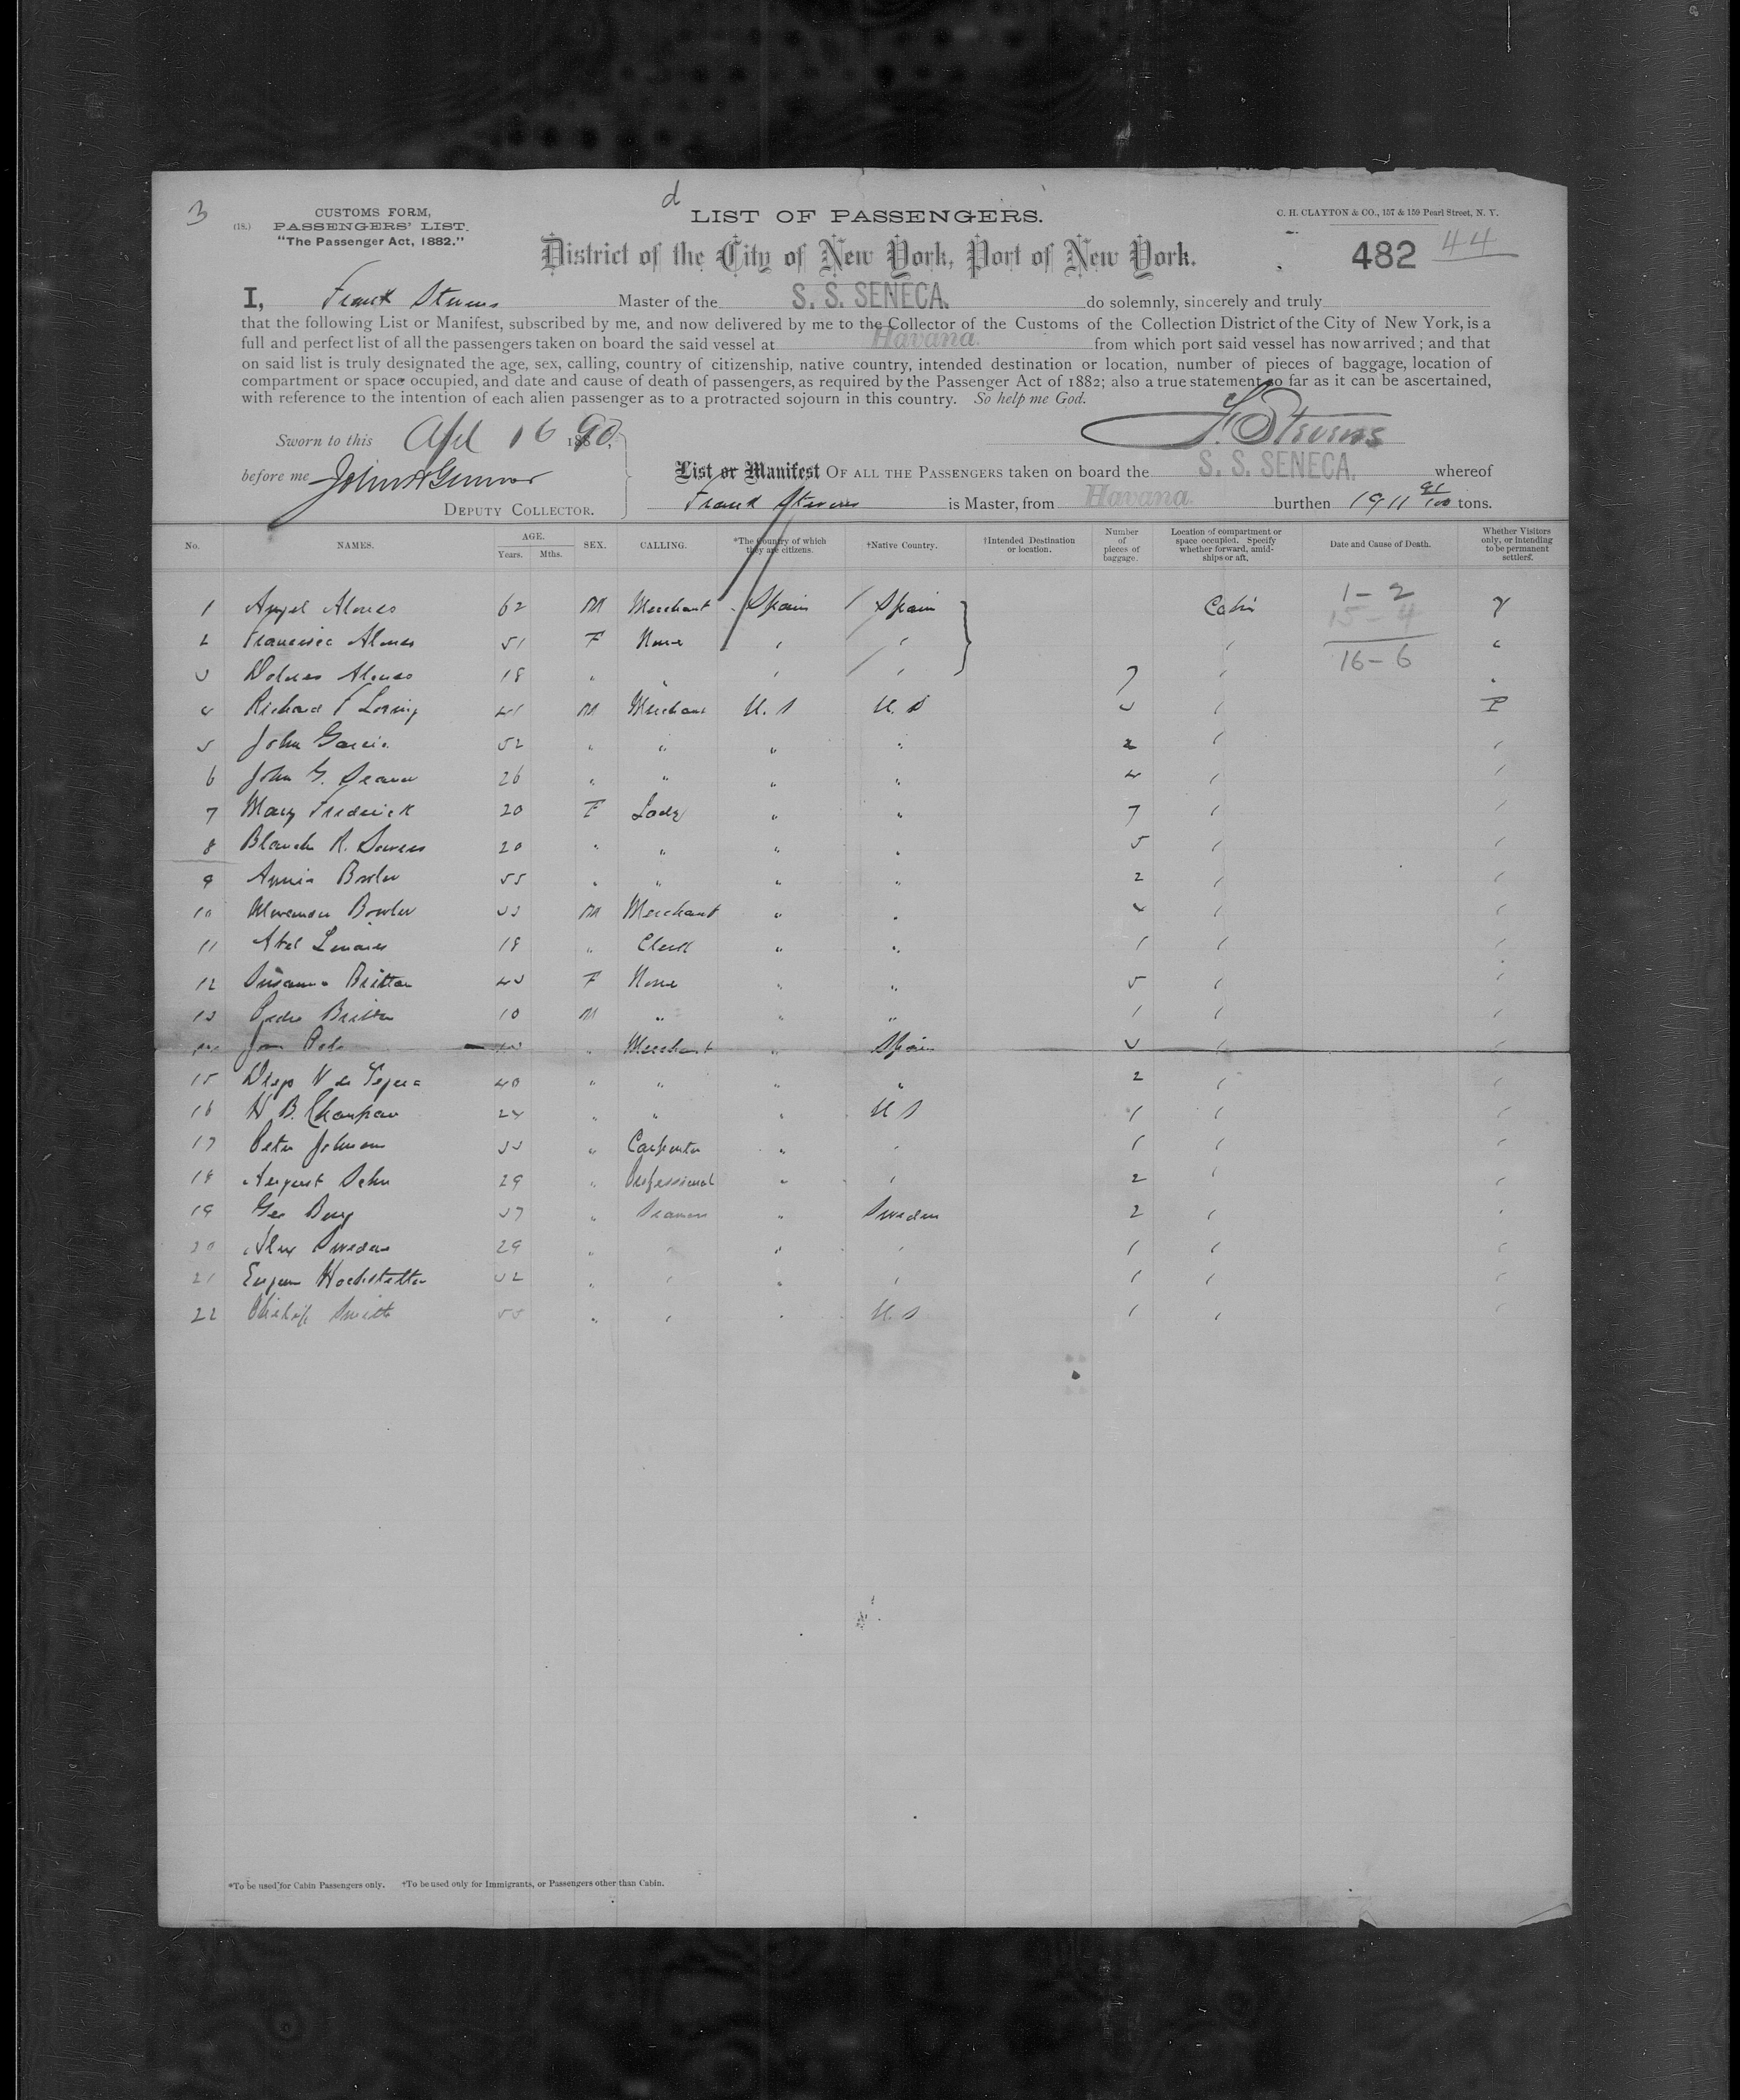 3
d
CUSTOMS FORM,
(18.) PASSENGERS' LIST.
"The Passenger Act, 1882."
LIST OF PASSENGERS.
C. H. CLAYTON & CO., 157 & 159 Pearl Street, N. Y.
District of the City of New York, Port of New York.
482 44
I, Frank Stevens Master of the S. S. SENECA. do solemnly, sincerely and truly
that the following List or Manifest, subscribed by me, and now delivered by me to the Collector of the Customs of the Collection District of the City of New York, is a
full and perfect list of all the passengers taken on board the said vessel at Havana. from which port said vessel has now arrived; and that
on said list is truly designated the age, sex, calling, country of citizenship, native country, intended destination or location, number of pieces of baggage, location of
compartment or space occupied, and date and cause of death of passengers, as required by the Passenger Act of 1882; also a true statement so far as it can be ascertained,
with reference to the intention of each alien passenger as to a protracted sojourn in this country. So help me God.
F. Stevens
Sworn to this Apl 16 1890,
before me John
DEPUTY COLLECTOR.
List or Manifest OF ALL THE PASSENGERS taken on board the S. S. SENECA. whereof
Frank Stevens is Master, from Havana. burthen 1911 91/100 tons.
No. NAMES. AGE. Years. Mths. SEX. CALLING. *The Country of which they are citizens. †Native Country. †Intended Destination or location. Number of pieces of baggage. Location of compartment or space occupied. Specify whether forward, amidships or aft. Date and Cause of Death. Whether Visitors only, or intending to be permanent settlers.
1 Angel Alonso 62 M Merchant Spain Spain Cabin 1-2
15-4
2 Francisca Alonso 51 F None " " "
16-6
3 Dolores Alonso 18 " " " " 7 "
4 Richard Loring 41 M Merchant U.S U.S 3 "
5 John Garcia 52 " " " " 2 "
6 John G. 26 " " " " 4 "
7 Mary Frederick 20 F Lady " " 7 "
8 Blanch R. 20 " " " " 5 "
9 Annie Bowler 55 " " " " 2 "
10 Bowler 33 M Merchant " " 4 "
11 Abel 18 " Clerk " " 1 "
12 Susanna Britton 43 F None " " 5 "
13 Pedro Britton 10 M " " " 1 "
14 " Merchant " Spain 3 "
15 Diego V de 40 " " " " 2 "
16 H B. Chapman 24 " " " U S 1 "
17 Peter Johnson 33 " Carpenter " " 1 "
18 August 29 " Professional " " 2 "
19 Geo Berg 37 " Seaman " Sweden 2 "
20 Alex 29 " " " " 1 "
21 Eugene Hochstetter 32 " " " " 1 "
22 Smith 55 " " " U.S 1 "
*To be used for Cabin Passengers only. †To be used only for Immigrants, or Passengers other than Cabin.